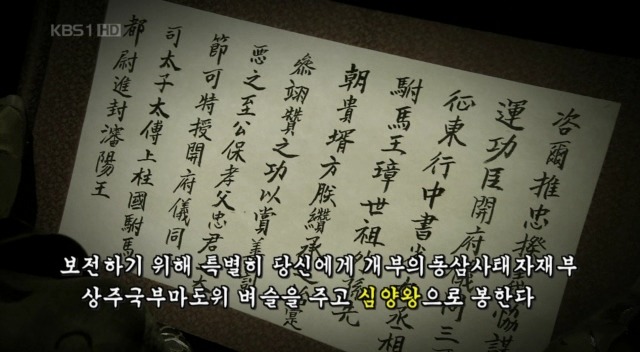 KBS1 HD
咨爾推忠揆義協謀
運功臣開府儀同三
征東行中書省丞相
駙馬王璋世祖外孫先
朝貴壻方朕纘承之始寔
叅翊贊之功以賞善
惡之至公保孝父忠君之
節可特授開府儀同
司太子太傅上柱國駙馬
都尉進封瀋陽王
보전하기 위해 특별히 당신에게 개부의동삼사태자재부
상주국부마도위 벼슬을 주고 심양왕으로 봉한다